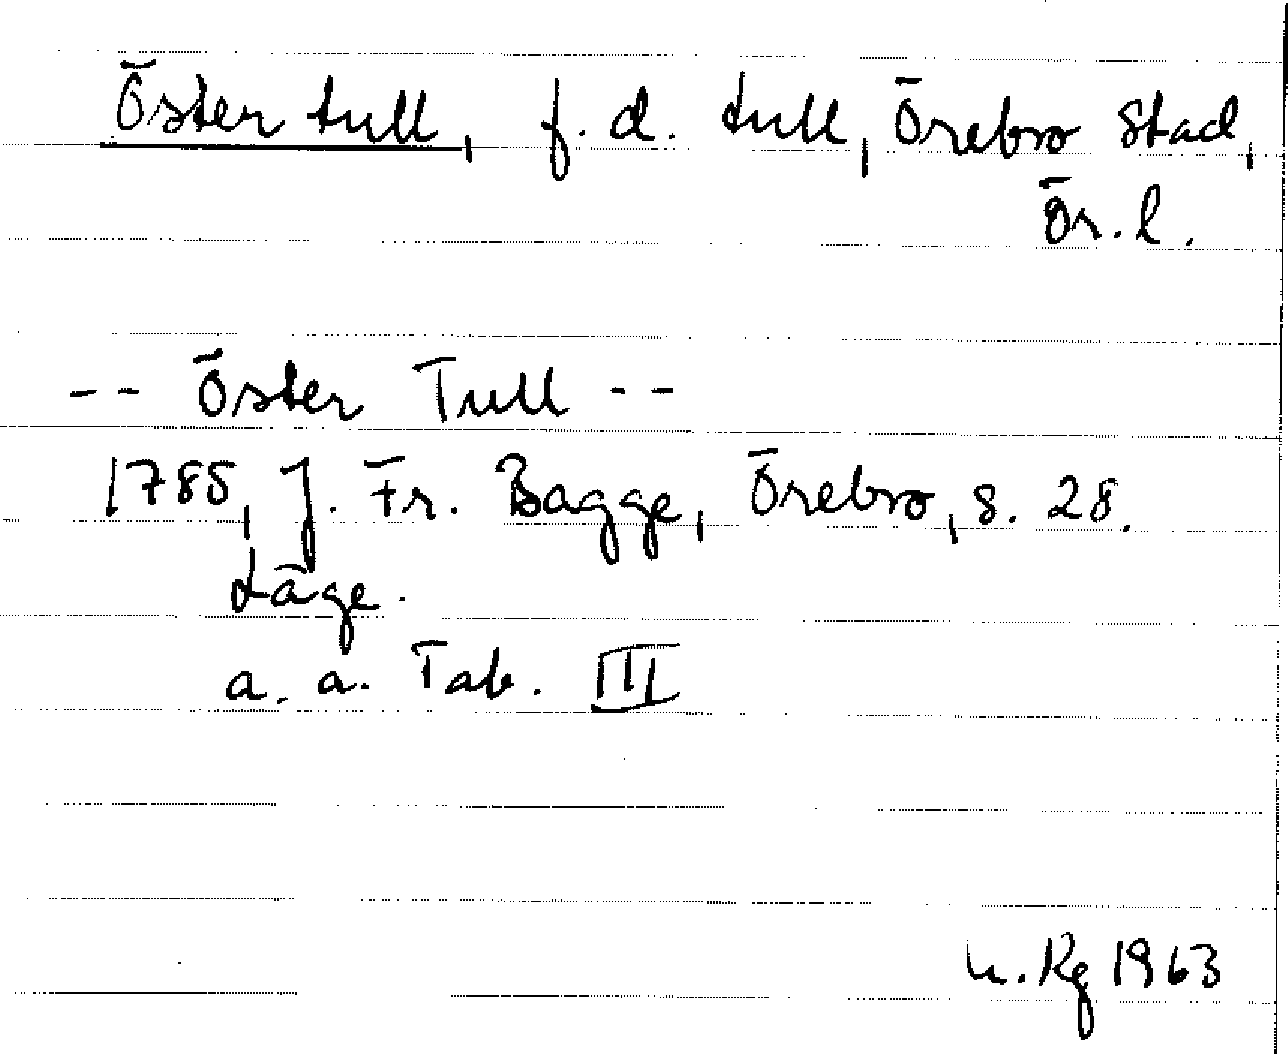 Öster tull, f. d. tull, Örebro stad,
Ör. l.
-- Öster Tull --
1785, J. Fr. Bagge, Örebro, s. 28.
Läge.
a. a. Tab. III
1963